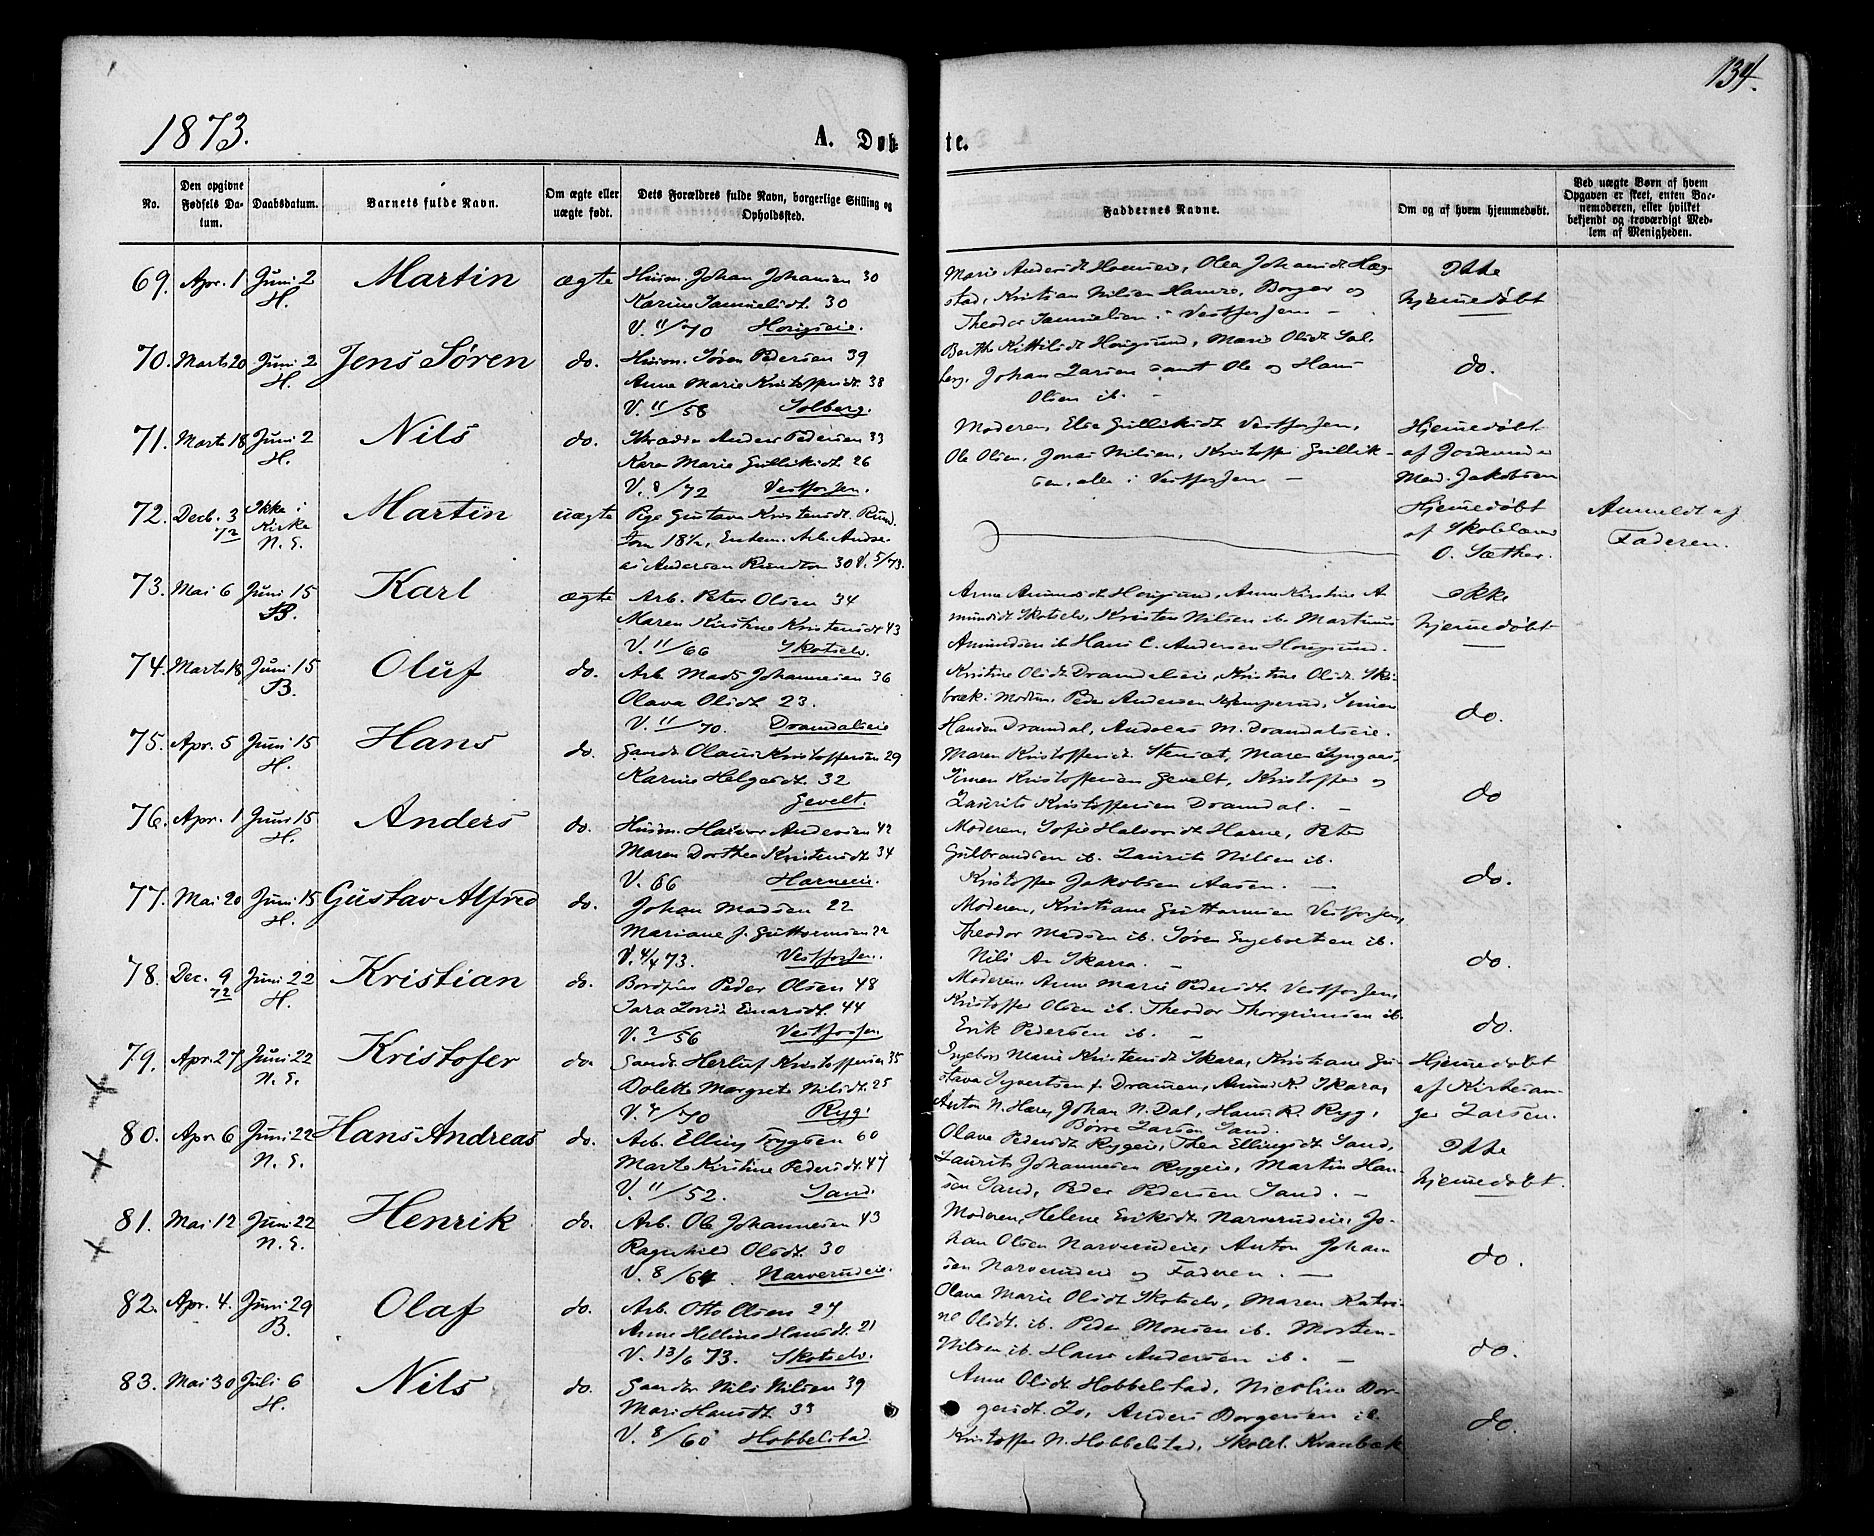 134.
1873.
A. Døbte.
No.
Den opgivne Fødsels Datum.
Daabsdatum.
Barnets fulde Navn.
Om ægte eller uægte født.
Dets Forældres fulde Navn, borgerlige Stilling og Opholdssted.
Faddernes Navne.
Om og af hvem hjemmedøbt.
Ved uægte Børn af hvem Opgaven er skeet, enten Barnemoderen, eller hvilket bekjendt og troværdigt Medlem af Menigheden.
69. Apr. 1 Juni 2 H. Martin ægte
Husm. Johan Johansen 30
Karine Samuelsdt. 30
V. 11/70 Hougseie.
Theodor Samuelsen i Vestfossen
Ikke hjemmedøbt
70. Marts 20 Juni 2 H. Jens Søren do.
Husm. Søren Pedersen 39
Anne Marie Kristoffersdt. 38
V. 11/58 Solberg.
Berthe Kittilsdt Hougsund, Marie Olsdt Sol-
berg, Johan Larsen samt Ole og Hans
Olsen ib.
do.
71. Marts 18 Juni 2 H. Nils do.
Anders Pedersen 33
Karen Marie Gulliksdt. 26
V. 8/72 Vestfossen.
Moderen, Else Gulliksdt Vestfossen,
Ole Olsen, Jonas Nilsen, Kristoffer Gullik-
sen, alle i Vestfossen
Hjemmedøbt
af Jordemoder
Mad. Jakobsen
72. Decb. 3 72 Ikke i Kirke N. E. Martin uægte
Pige Gustava Kristensdt. Rund-
tom 18½, Enkem. Arb. Andre-
as Andersen Rundtom 30 V. 5/73.
Hjemmedøbt
af Skolelærer
O. Sæther.
Anmeldt af
Faderen.
73. Mai 6 Juni 15 B. Karl ægte
Arb. Peter Olsen 34
Maren Kirstine Kristensdt 43
V. 11/66 Skotselv.
Anne Amundsdt Hougsund, Anne Kirstine A-
mundsdt Skotselv, Kristen Nilsen ib. Martinus
Amundsen ib. Hans C. Andersen Hougsund.
Ikke
hjemmedøbt
74. Marts 18 Juni 15 B. Oluf do.
Arb. Mads Johannesen 36
Olava Olsdt 23.
V. 11/70. Dramdalseie
Kristine Olsdt Dramdalseie, Kristine Olsdt. Ski-
bræk i Modum, Peder Andersen Kjemperud, Simen
Hansen Dramdal, Andreas M. Dramdalseie.
do.
75. Apr. 5 Juni 15 H. Hans do.
Gaardb. Olaus Kristoffersen 29
Karine Helgesdt. 32
Gevelt.
Simen Kristoffersen Gevelt, Kristoffer og
Laurits Kristoffersen Dramdal.
do
76. Apr. 1 Juni 15 H. Anders do.
Husm. Halvor Andersen 42
Maren Dorthea Kristensdt 34
V. 66 Harneeie.
Moderen, Sofie Halvorsdt Harne, Peter
Gulbrandsen ib. Laurits Nilsen ib.
Kristoffer Jakobsen Aasen.
do.
77. Mai 20 Juni 15 H. Gustav Alfred do.
Johan Madsen 22
Mariane J. Guttormsen 22
V. 4/4 73. Vestfossen.
Moderen, Kristiane Guttormsen Vestfossen,
Theodor Madsen ib. Søren Engebretsen ib.
Nils A. Skarra.
do.
78. Dec. 9 72 Juni 22 H. Kristian do.
Peder Olsen 48
Sara Lovise Einarsdt. 44
V. ?/56 Vestfossen
Moderen Anne Marie Pedersdt Vestfossen
Kristoffer Olsen ib. Theodor Thorgrimsen ib.
Erik Pedersen ib.
do.
79. Apr. 27 Juni 22 N. E. Kristofer do.
Gaardb. Herluf Kristoffersen 35
Dolette Margrete Nilsdt. 25
V. 4/70 Ryg.
Ingeborg Marie Kristensdt Skara, Kristiane Gu-
stava Syvertsen f. Dramen, Amund K. Skara,
Anton N. Hære, Johan N. Dal, Hans R. Ryg,
Børre Larsen Sand.
Hjemmedøbt
af Kirkesan-
ger Larsen.
80. Apr. 6 Juni 22 N. E. Hans Andreas do.
Arb. Elling Trygsen 60
Marte Kirstine Pedersdt. 47
V. 11/52. Sand.
Olave Pedersdt Rygeie, Thea Ellingsdt Sand,
Laurits Johannesen Rygeie, Martin Han-
sen Sand, Peder Pedersen Sand.
Ikke
hjemmedøbt.
81. Mai 12 Juni 22 N. E. Henrik do.
Arb. Ole Johannesen 43
Ragnhild Olsdt. 30
V. 8/64. Narverudeie.
Moderen, Helene Eriksdt Narverudeie, Jo-
han Olsen Narverudeie, Anton Johan-
sen Narverudeie og Faderen.
do.
82. Apr. 4. Juni 29 B. Olaf do.
Arb. Otto Olsen 27
Anne Helline Hansdt. 21
V. 13/6 73. Skotselv.
Olava Marie Olsdt Skotselv, Maren Katri-
ne Olsdt. ib. Peder Monsen ib. Morten
Nilsen ib. Hans Andersen ib.
do.
83. Mai 30 Juli 6 H. Nils do.
Gaardb. Nils Nilsen 39
Mari Hansdt. 33
V. 8/60 Hobbelstad
Anne Olsdt Hobbelstad, Nicoline Bor-
gersdt. Lo, Anders Borgersen ib.
Kristoffer N. Hobbelstad, Skolel. Kranbæk
do.